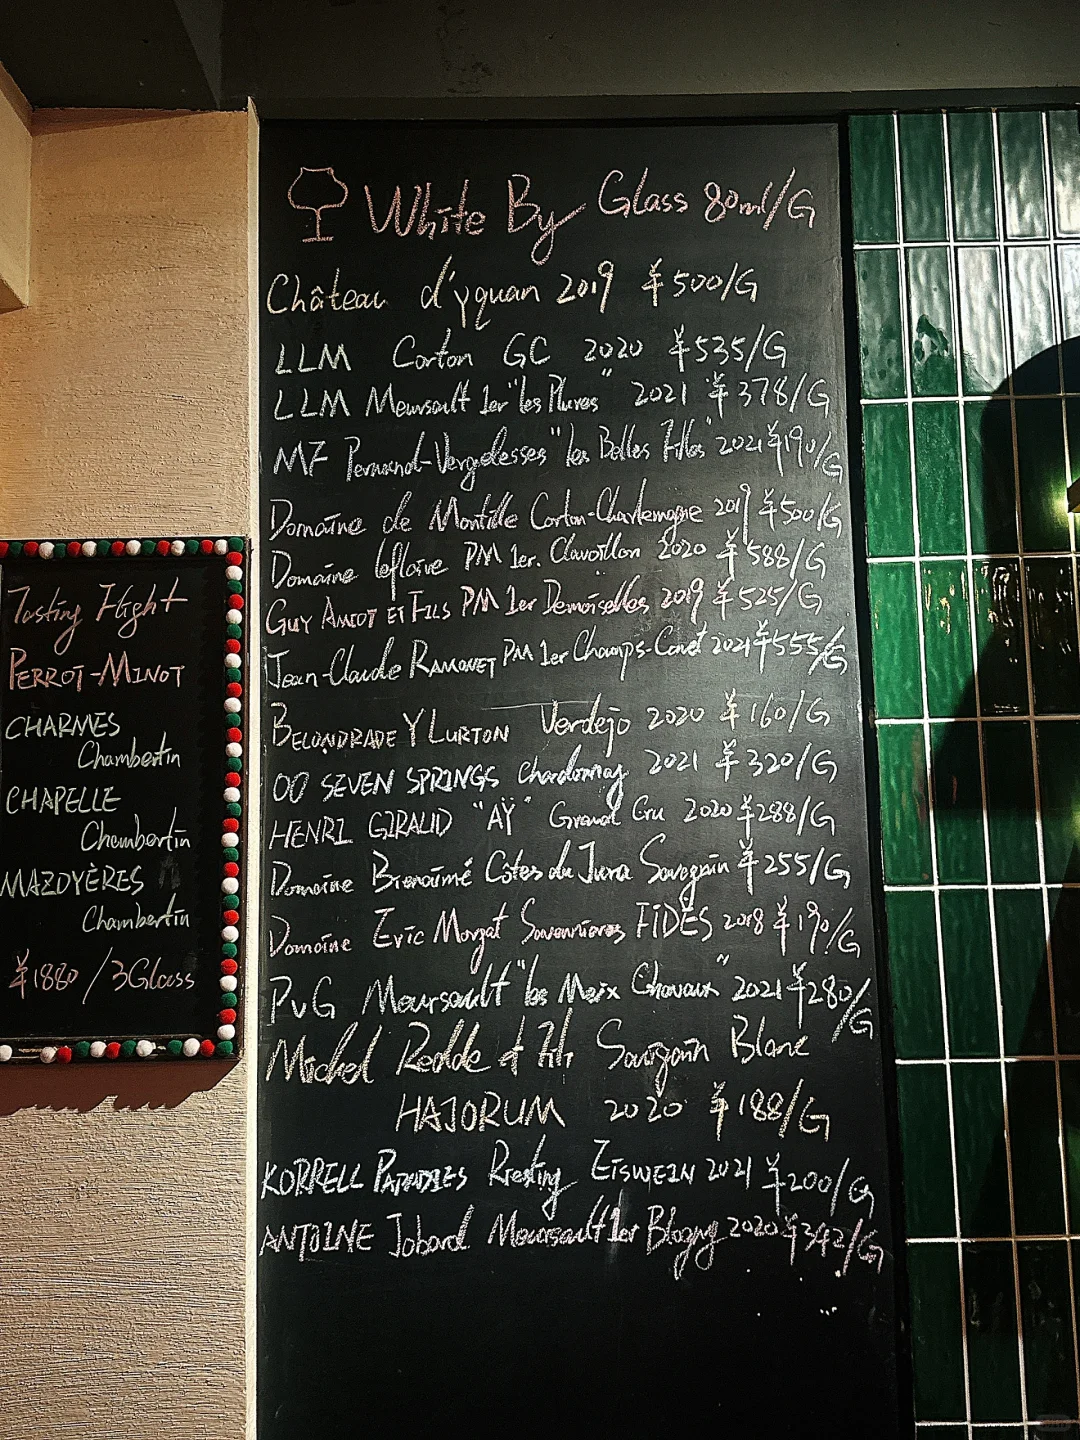 White By Glass 80ml/G
Château d'yquan 2019 ¥500/G
LLM Corton GC 2020 ¥535/G
LLM Meursault 1er "les Plures" 2021 ¥378/G
MF Pernand-Vergelesses "les Belles Filles" 2021 ¥190/G
Domaine de Montille Corton-Charlemagne 2019 ¥500/G
Domaine leflaive PM 1er. Clavoillon 2020 ¥588/G
GUY AMIOT ET FILS PM 1er Demoiselles 2019 ¥525/G
Jean-Claude RAMONET PM 1er Champs-Canet 2021 ¥555/G
BELONDRADE Y LURTON Verdejo 2020 ¥160/G
OO SEVEN SPRINGS Chardonnay 2021 ¥320/G
HENRI GIRAUD "AŸ" Grand Cru 2020 ¥288/G
Domaine Bienaimé Côtes du Jura Savagnin ¥255/G
Domaine Eric Morgat Savennières FIDÈS 2018 ¥190/G
PvG Meursault "les Meix Chavaux" 2021 ¥280/G
Michel Redde et Fils Sauvignon Blanc
MAJORUM 2020 ¥188/G
KORRELL PARADIES Riesling EISWEIN 2021 ¥200/G
ANTOINE Jobard Meursault 1er Blagny 2020 ¥342/G
Tasting Flight
PERROT-MINOT
CHARMES
Chambertin
CHAPELLE
Chambertin
MAZOYÈRES
Chambertin
¥1880/3Glass